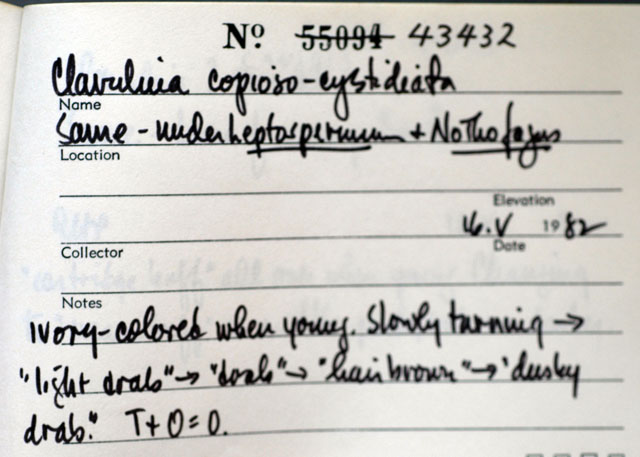 Nº 55094 43432
Clavulina copioso-cystidiata
Name
Same - under Leptospermum + Nothofagus
Location
Elevation
16.V 1982
Collector
Date
Notes
Ivory-colored when young. Slowly turning →
"light drab" → "drab" → "hair brown" → "dusky
drab." T+O=0.